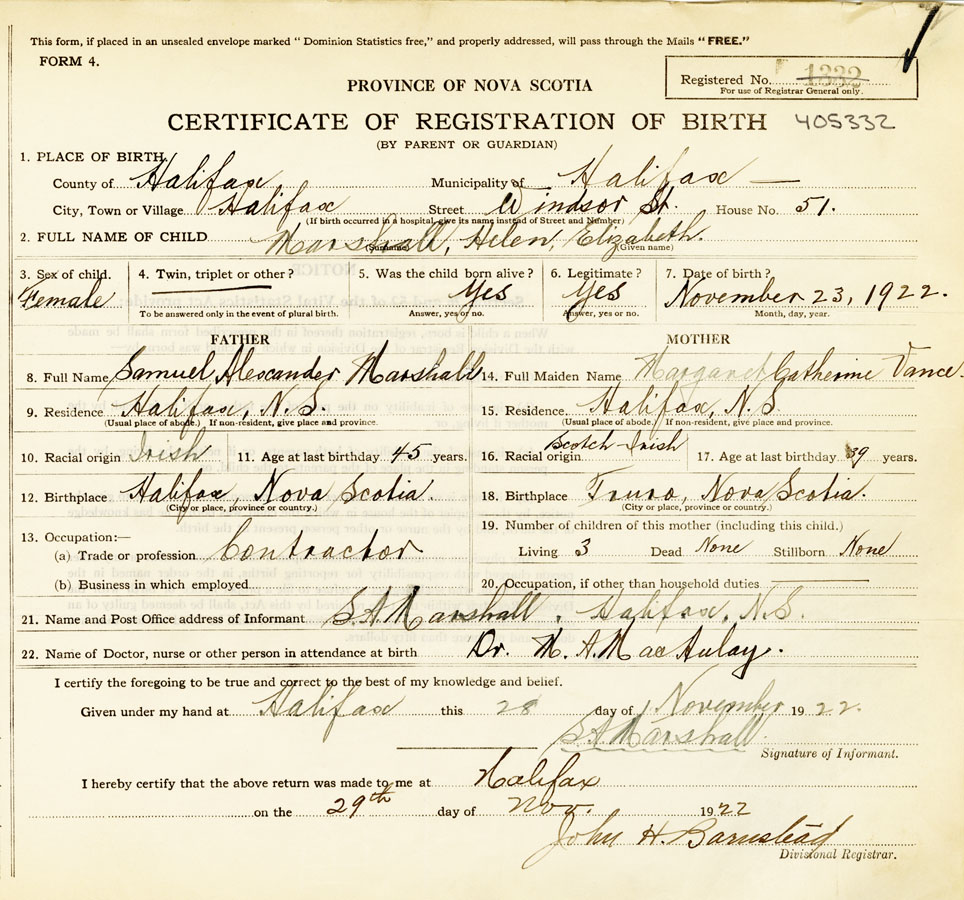 This form, if placed in an unsealed envelope marked “ Dominion Statistics free,” and properly addressed, will pass through the Mails “FREE.”
FORM 4.
Registered No. 1332
For use of Registrar General only.
PROVINCE OF NOVA SCOTIA
CERTIFICATE OF REGISTRATION OF BIRTH 405332
(BY PARENT OR GUARDIAN)
1. PLACE OF BIRTH
County of Halifax Municipality of Halifax
City, Town or Village Halifax Street Windsor St. House No. 51.
(If birth occurred in a hospital, give its name instead of Street and Number)
2. FULL NAME OF CHILD Marshall, Helen, Elizabeth.
(Surname) (Given name)
3. Sex of child. 4. Twin, triplet or other? 5. Was the child born alive? 6. Legitimate? 7. Date of birth?
Female Yes Yes November 23, 1922.
To be answered only in the event of plural birth. Answer, yes or no. Answer, yes or no. Month, day, year.
FATHER MOTHER
8. Full Name Samuel Alexander Marshall 14. Full Maiden Name Margaret Catherine Vance
9. Residence Halifax, N.S. 15. Residence. Halifax, N.S
(Usual place of abode.) If non-resident, give place and province. (Usual place of abode.) If non-resident, give place and province.
10. Racial origin Irish 11. Age at last birthday 45 years. 16. Racial origin Scotch-Irish 17. Age at last birthday 39 years.
12. Birthplace Halifax, Nova Scotia. 18. Birthplace Truro, Nova Scotia.
(City or place, province or country.) (City or place, province or country.)
13. Occupation:— 19. Number of children of this mother (including this child.)
(a) Trade or profession Contractor Living 3 Dead None Stillborn None
(b) Business in which employed 20. Occupation, if other than household duties
21. Name and Post Office address of Informant S.A. Marshall, Halifax, N.S.
22. Name of Doctor, nurse or other person in attendance at birth Dr. M. A. MacAulay.
I certify the foregoing to be true and correct to the best of my knowledge and belief.
Given under my hand at Halifax this 28 day of November 1922.
S A Marshall
Signature of Informant.
I hereby certify that the above return was made to me at Halifax
on the 29th day of Nov. 1922
John H. Barnstead
Divisional Registrar.